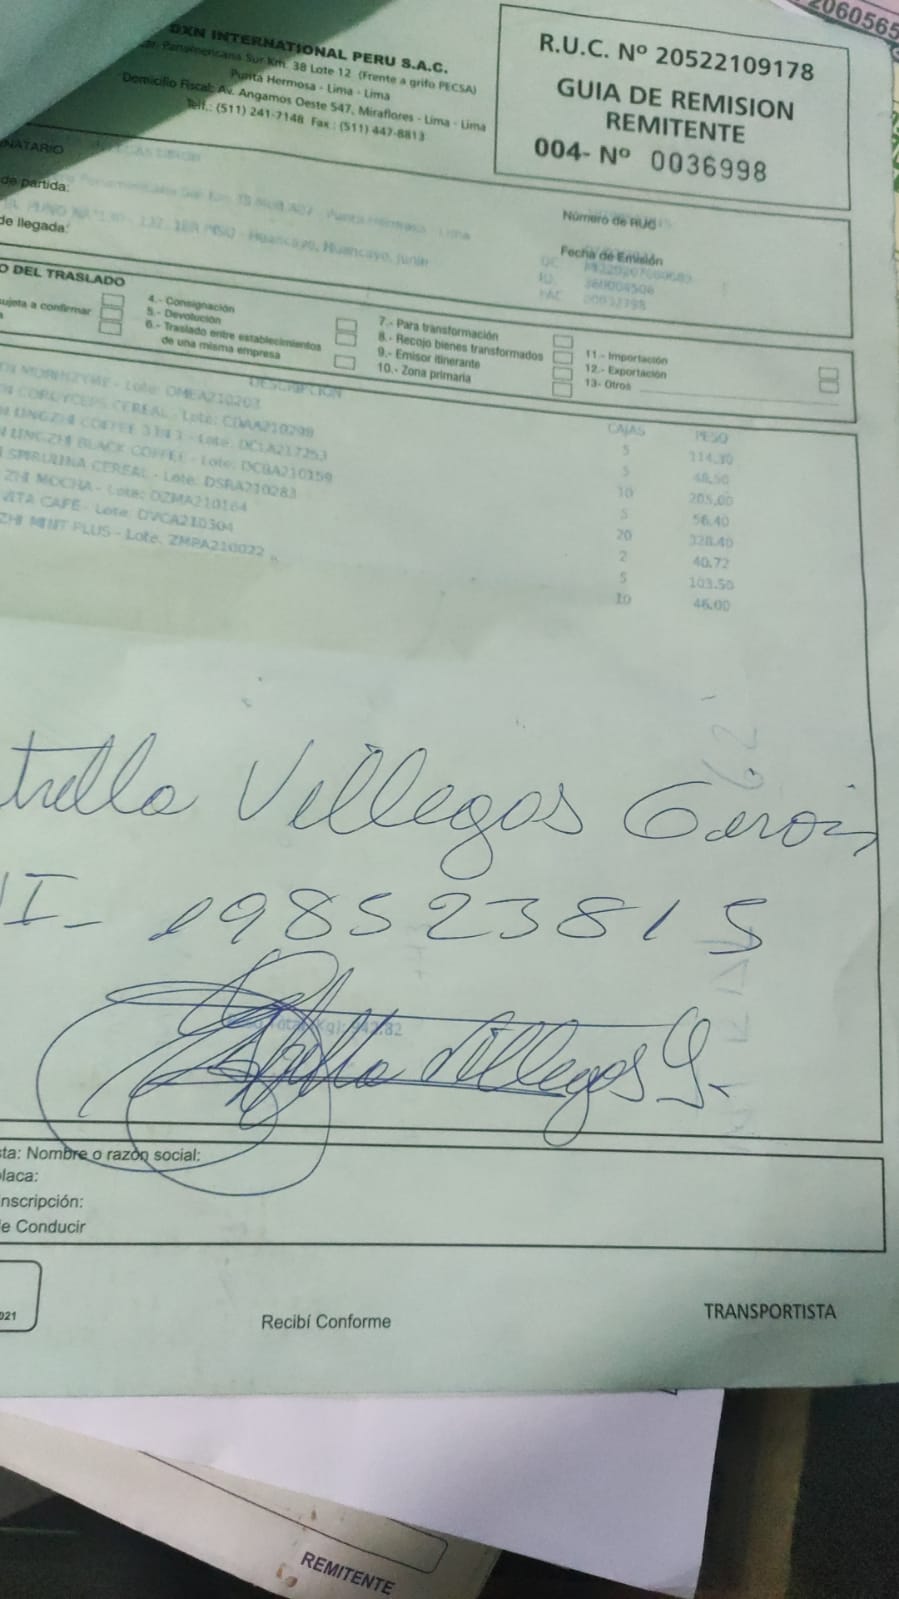 DXN INTERNATIONAL PERU S.A.C.
Panamericana Sur Km. 38 Lote 12 (Frente a grifo PECSA)
Punta Hermosa - Lima - Lima
Domicilio Fiscal: Av. Angamos Oeste 547, Miraflores - Lima - Lima
Telf.: (511) 241-7148 Fax : (511) 447-8813
R.U.C. Nº 20522109178
GUIA DE REMISION
REMITENTE
004- Nº 0036998
2060565
NATARIO
de partida:
Panamericana Sur Km
Punta Hermosa - Lima
de llegada:
Huancayo, Huancayo, Junin
Número de RUC
Fecha de Emisión
O DEL TRASLADO
sujeta a confirmar
4.- Consignación
5.- Devolución
6.- Traslado entre establecimientos
de una misma empresa
7.- Para transformación
8.- Recojo bienes transformados
9.- Emisor itinerante
10.- Zona primaria
11.- Importación
12.- Exportación
13.- Otros
DESCRIPCION CAJAS PESO
N MORINZYME - Lote: OMEA210203 5 114.30
N CORDYCEPS CEREAL - Lote: CDAA210298 5 48.50
N LINGZHI COFFEE 3 IN 1 - Lote: DCLA217253 10 205.00
N LINGZHI BLACK COFFEE - Lote: DCBA210159 5 56.40
SPIRULINA CEREAL - Lote: DSRA210283 20 328.40
ZHI MOCHA - Lote: DZMA210164 2 40.72
VITA CAFE - Lote: DVCA210304 5 103.50
ZHI MINT PLUS - Lote: ZMPA210022 10 46.00
trella Villegas Garcia
I- 198523815
Total
.82
Villegas G.
sta: Nombre o razón social:
placa:
nscripción:
e Conducir
021
Recibí Conforme
TRANSPORTISTA
REMITENTE